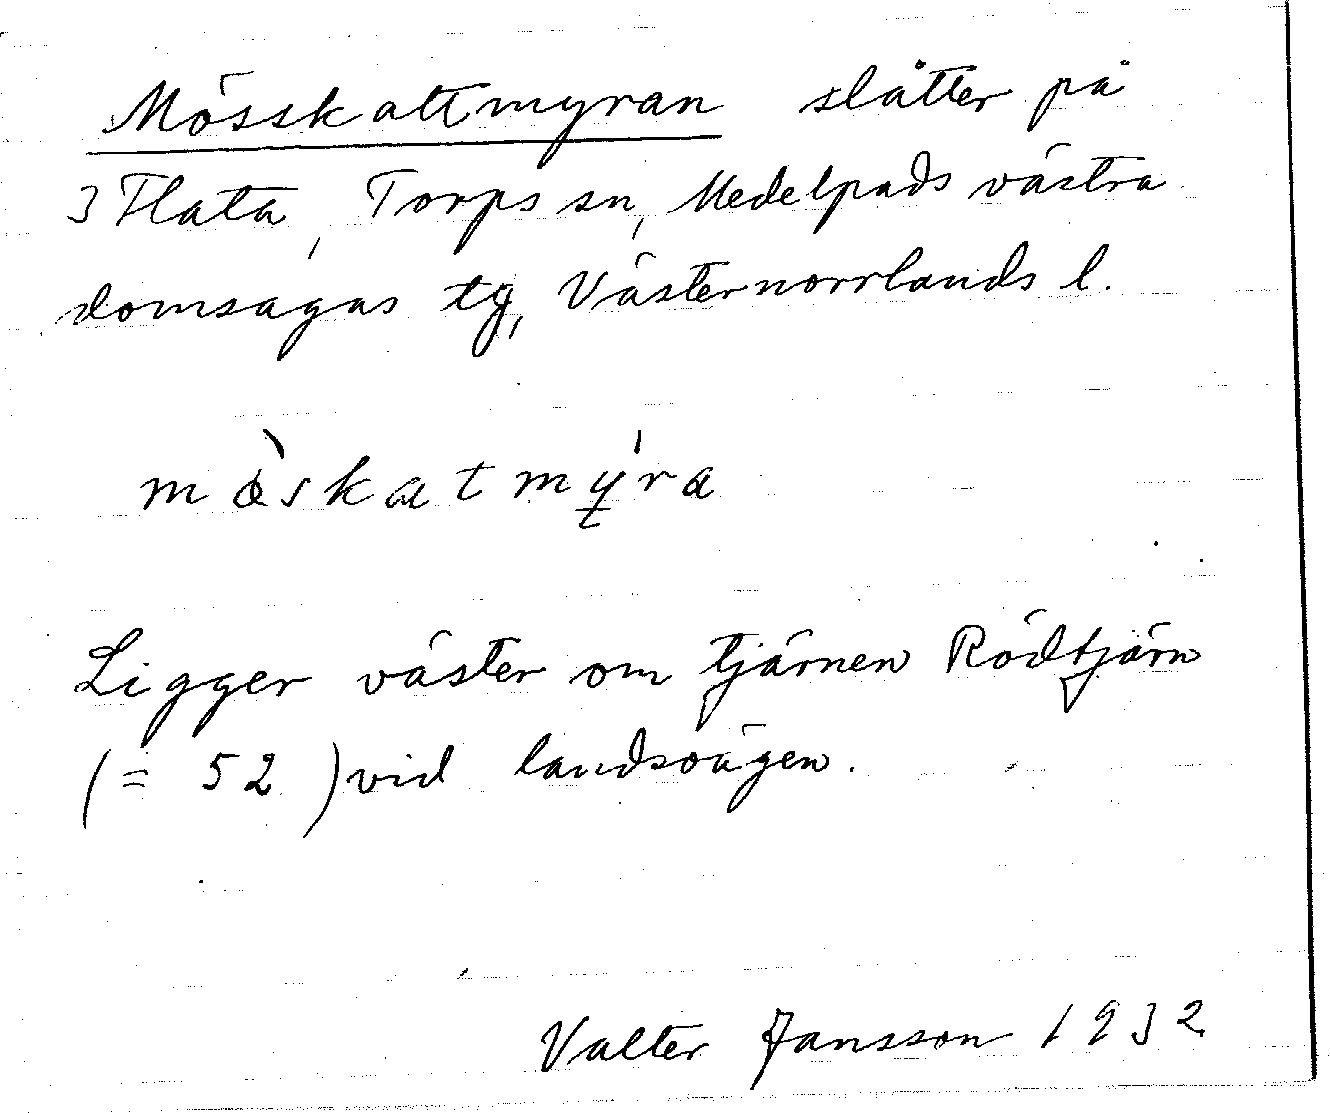 Mösskattmyran slåtter på
3 Flata, Torps sn, Medelpads västra
domsagas tg, Västernorrlands l.
mòskatmýra
Ligger väster om tjärnen Rödtjärn
(= 52 ) vid landsvägen.
Valter Jansson 1932